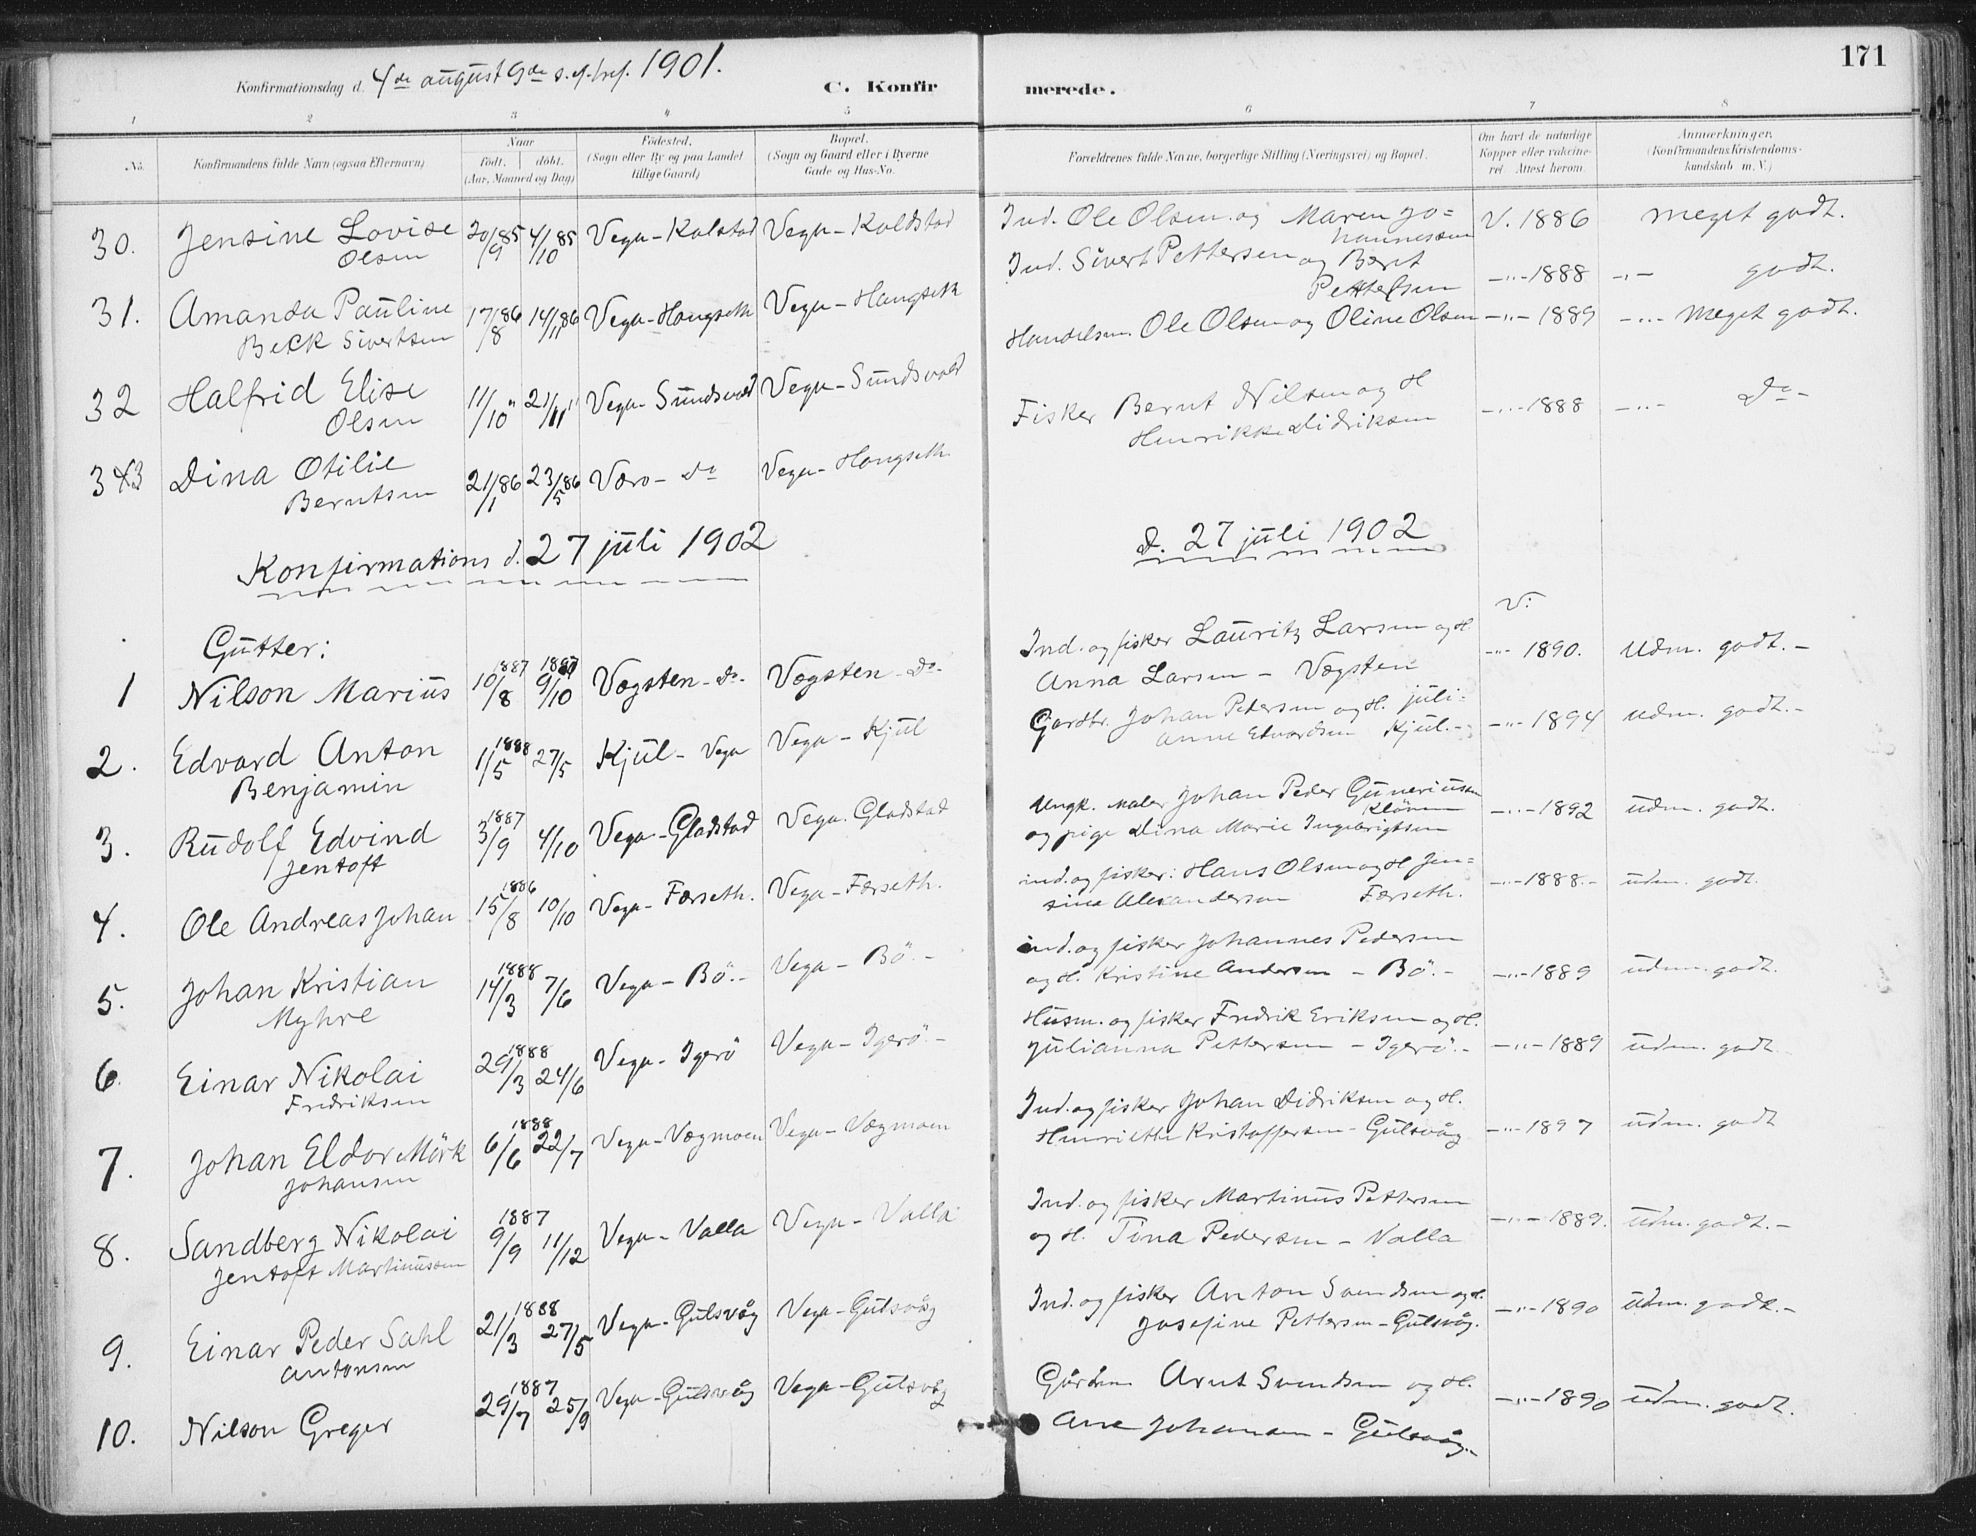 171
Konfirmationsdag d. 4de august 9de 1901.
C. Konfirmerede.
1 2 3 4 5 6 7 8
No.
Konfirmandens fulde Navn (ogsaa Efternavn)
Naar
født. døbt.
(Aar, Maaned og Dag)
Fødested.
(Sogn eller By og paa Landet
tillige Gaard)
Bopæl.
(Sogn og Gaard eller i Byerne
Gade og Hus-No.
Forældrenes fulde Navne, borgerlige Stilling (Næringsvei) og Bopæl.
Om havt de naturlige
Kopper eller vakcine-
ret. Attest herom.
Anmerkninger.
(Konfirmandens Kristendoms-
kundskab m. V.)
30. Jensine Lovise 20/9 85 4/10 85 Vega - Kolstad Vega - Koldstad Ind. Ole Olsen og Maren Jo= V. 1886 meget godt.
Olsen hannessen
31. Amanda Pauline 17/8 86 14/11 86 Vega - Hongseth Vega - Hongseth Ind. Sivert Pettersen og Beret -"- 1888 -"- godt.
Beck Sivertsen Pettersen
32 Halfrid Elise 11/10 " 21/11 " Vega - Sundsvold Vega - Sundsvold Handelsm. Ole Olsen og Oline Olsen -"- 1889 -"- Meget godt.
Olsen
33 Dina Otilie 21/1 86 23/5 86 Værø - do Vega - Hongseth Fisker Bernt Nilsen og H -"- 1888 -"- Do -
Berntsen Henrikke Didriksen
Konfirmations d. 27 juli 1902 d. 27 juli 1902
Gutter: V:
1 Nilson Marius 10/8 1887 9/10 1887 Vægsten - Do. Vægsten - Do. Ind. og fisker Lauritz Larsen og H. -"- 1890. udm. godt. -
Anna Larsen - Vægsten
2. Edvard Anton 1/5 1888 27/5 Kjul - Vega Vega - Kjul Gardbr. Johan Petersen og H. juli- -"- 1894 udm. godt. -
Benjamin anne Edvardsen Kjul. -
3. Rudolf Edvind 3/9 1887 4/10 Vega - Gladstad Vega. Gladstad Ungk. Maler Johan Peder Guneriusen -"- 1892 udm. godt.
Jentoft og pige Dina Marie Ingebrigtsen
4. Ole Andreas Johan 15/8 1886 10/10 Vega - Færseth. Vega - Færseth. ind. og fisker: Hans Olsen og H Jen= -"- 1888. - udm. godt.
sine Alexandersen Færseth.
5. Johan Kristian 14/3 1888 7/6 Vega - Bö. - Vega - Bö. - ind. og fisker Johannes Pedersen
Myhre og H. Kristine Andersen - Bö. - -"- 1889 udm. godt.
6. Einar Nikolai 29/3 1888 24/6 Vega - Igerö Vega - Igerö. - Husm. og fisker Fredrik Eriksen og H.
Fredriksen Julianna Pettersen - Igerö. - -"- 1889 udm. godt
7. Johan Eldor Mörk 6/6 1888 22/7 Vega - Vægmoen Vega - Vægmoen Ind. og fisker Johan Didriksen og H.
Johansen Henriette Kristoffersen - Gulsvåg -"- 1897 udm. godt
8. Sandberg Nikolai 9/9 1887 11/12 Vega - Valla Vega - Valla Ind. og fisker Martinus Pettersen
Jentoft Martinussen og H. Tina Pedersen - Valla -"- 1889. udm. godt. -
9. Einar Peder Sahl 21/3 1888 27/5 Vega - Gulsvåg Vega - Gulsvåg Ind. og fisker Anton Svendsen og H. -"- 1890 udm. godt. -
Antonsen Josefine Pettersen - Gulsvåg.
10. Nilson Greger 29/7 1887 25/9 Vega - Gulsvåg Vega - Gulsvåg Gårdm. Arnt Svendsen og H. -"- 1890 udm. godt.
Ane Johansen - Gulsvåg. -